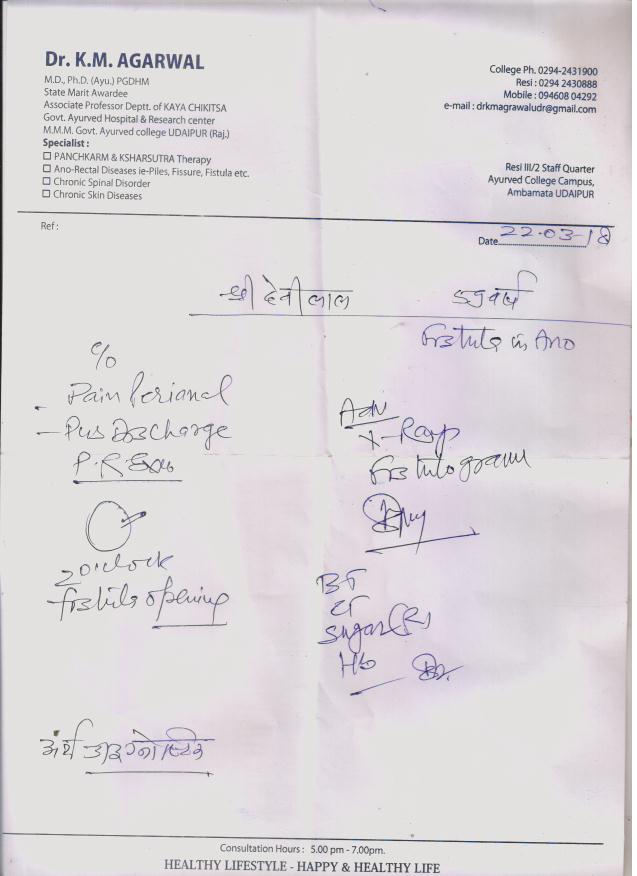 Dr. K.M. AGARWAL
M.D., Ph.D. (Ayu.) PGDHM
State Marit Awardee
Associate Professor Deptt. of KAYA CHIKITSA
Govt. Ayurved Hospital & Research center
M.M.M. Govt. Ayurved college UDAIPUR (Raj.)
Specialist :
PANCHKARM & KSHARSUTRA Therapy
Ano-Rectal Diseases ie-Piles, Fissure, Fistula etc.
Chronic Spinal Disorder
Chronic Skin Diseases
College Ph. 0294-2431900
Resi : 0294 2430888
Mobile : 094608 04292
e-mail : drkmagrawaludr@gmail.com
Resi III/2 Staff Quarter
Ayurved College Campus,
Ambamata UDAIPUR
Ref :
Date 22-03-18
श्री देवी लाल
Fistula in Ano
c/o
Pain Perianal
- Pus Discharge
P.R. Exam
2 o'clock
fistula opening
Adv
X-Ray
Fistulogram
BT
CT
Sugar (R)
Hb
अर्थ डाइग्नोस्टिक
Consultation Hours : 5.00 pm - 7.00pm.
HEALTHY LIFESTYLE - HAPPY & HEALTHY LIFE